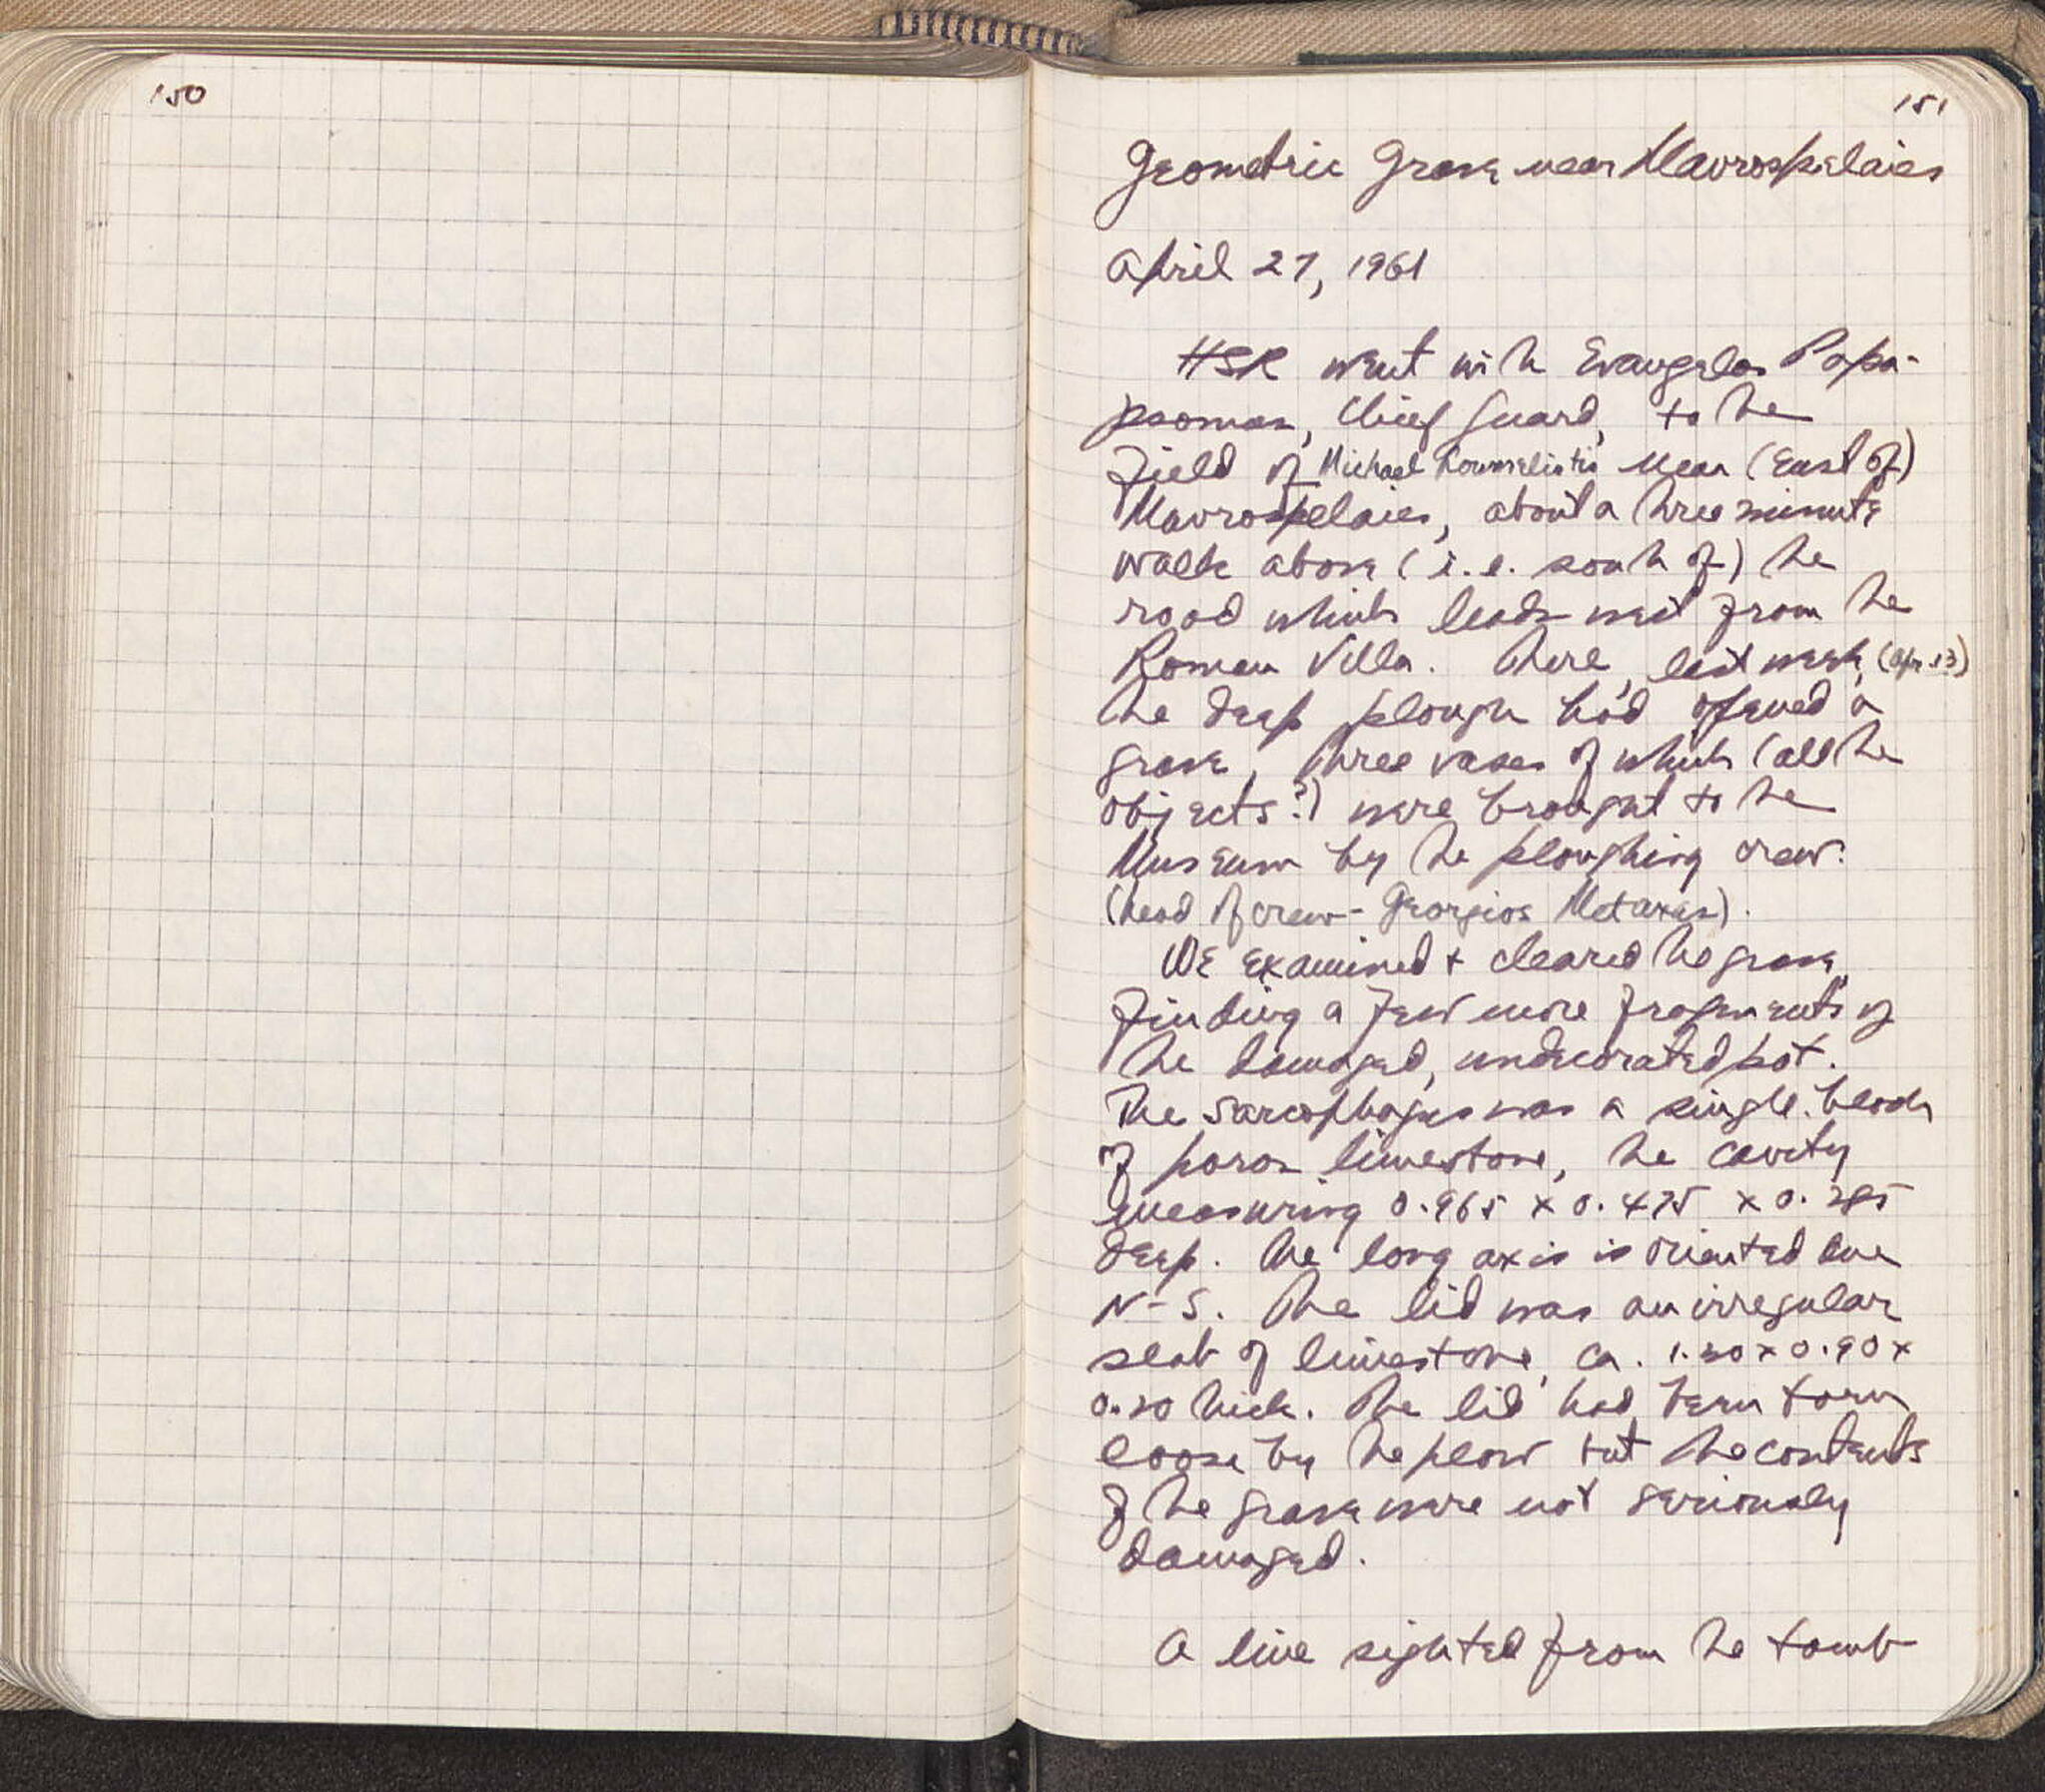 150
151
Geometric Grave near Mavrospelaies
April 27, 1961
HSR went with Evangelos Papa-
psomas, Chief Guard, to the
field of Michael near (East of)
Mavrospelaies, about a three minute
walk above (i.e. south of) the
road which leads west from the
Roman Villa. There, last week, (Apr.
the deep plough had opened a
grave, three vases of which (all the
objects?) were brought to the
Museum by the ploughing crew.
(head of crew - Georgios Metaxas).
We examined + cleared the grave,
finding a few more fragments of
the damaged, undecorated pot.
The sarcophagus was a single block
of poros limestone, the cavity
measuring 0.965 x 0.475 x
deep. The long axis is oriented due
N-S. The lid was an irregular
slab of limestone, ca. x 0.90 x
thick. The lid had been torn
loose by the plow but the contents
of the grave were not seriously
damaged.
A line sighted from the tomb